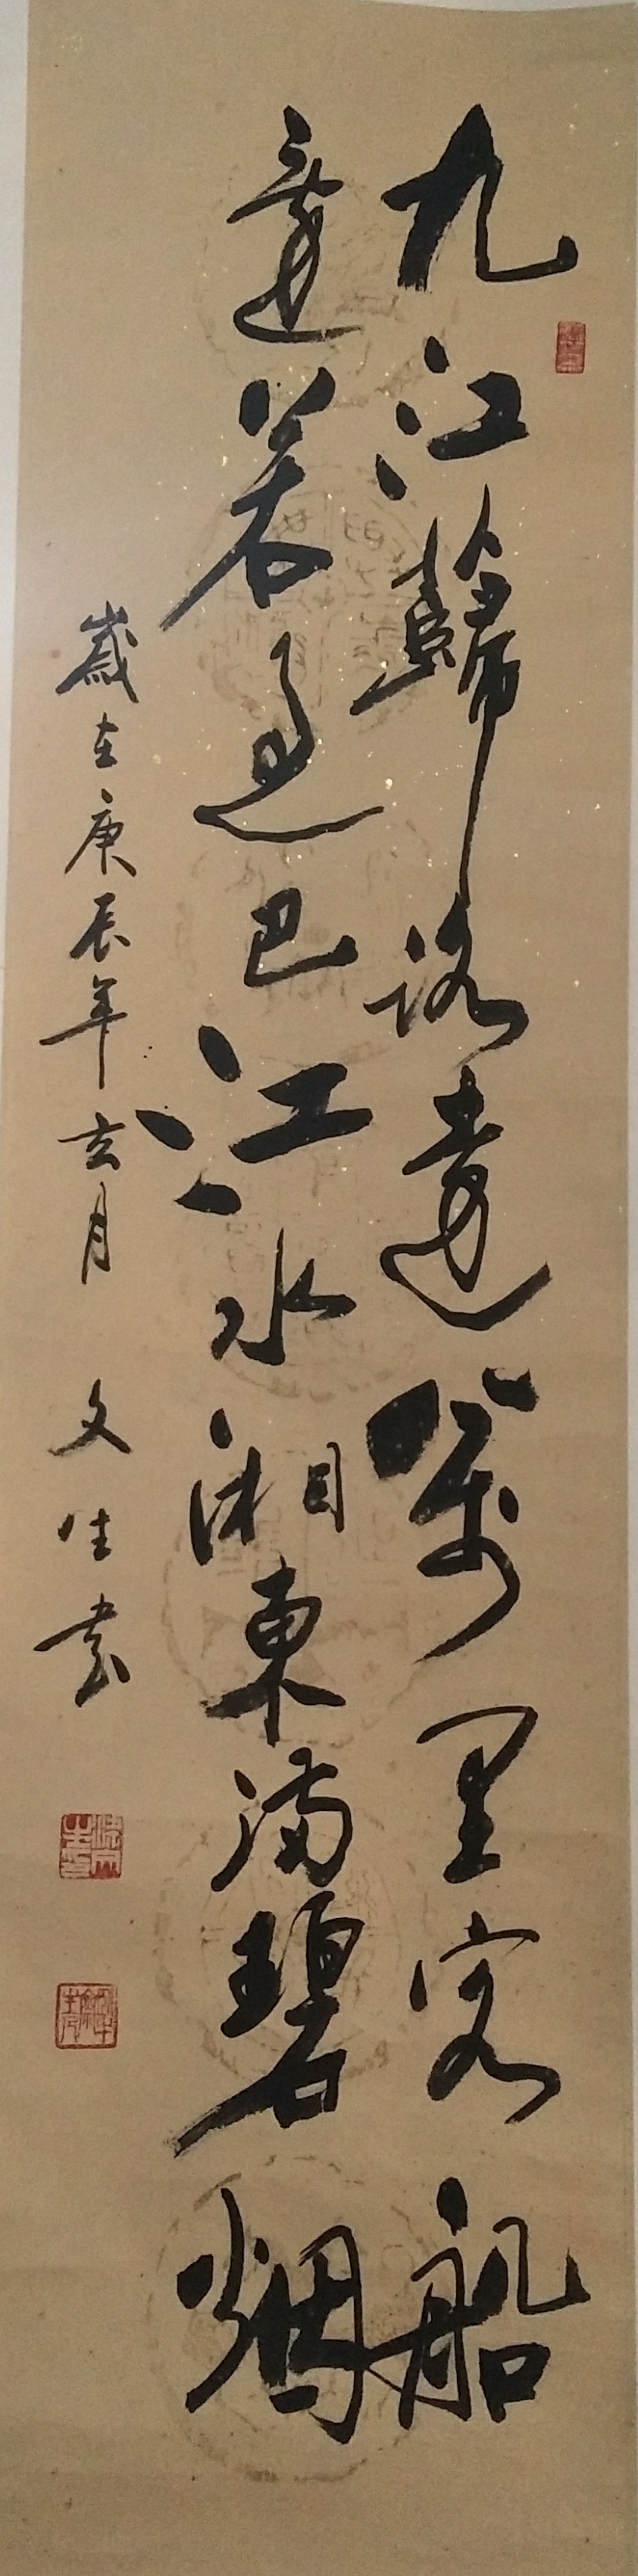 九江歸路遠萬里客船
還若過巴江水湘東滿碧烟
歲在庚辰年玄月 文生書